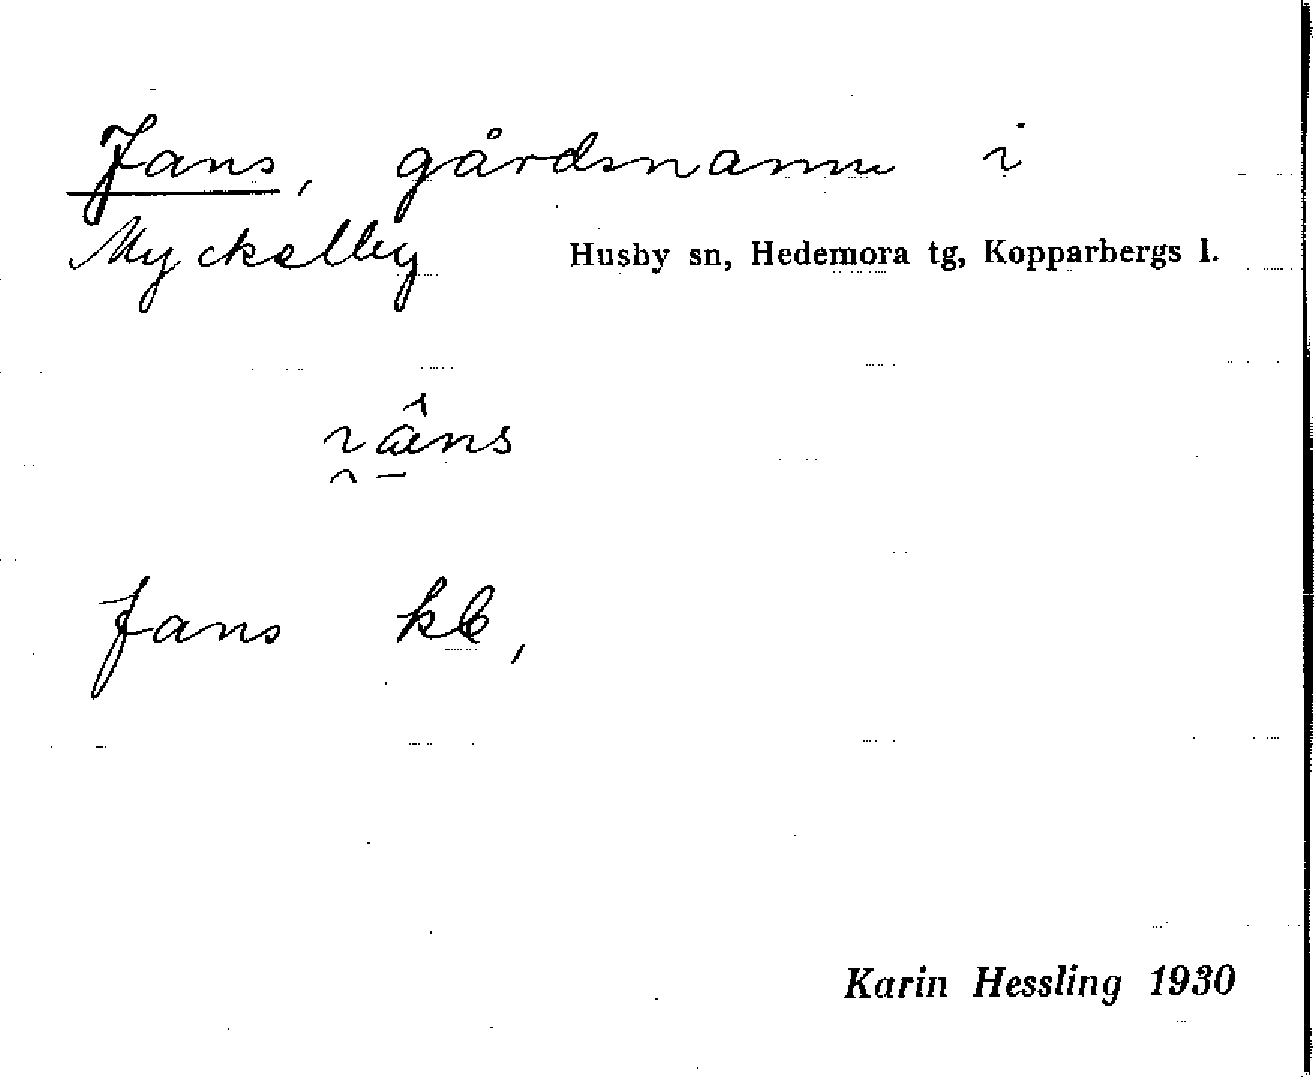 Jans, gårdsnamn i
Myckelby Husby sn, Hedemora tg, Kopparbergs l.
Jans kb,
Karin Hessling 1930